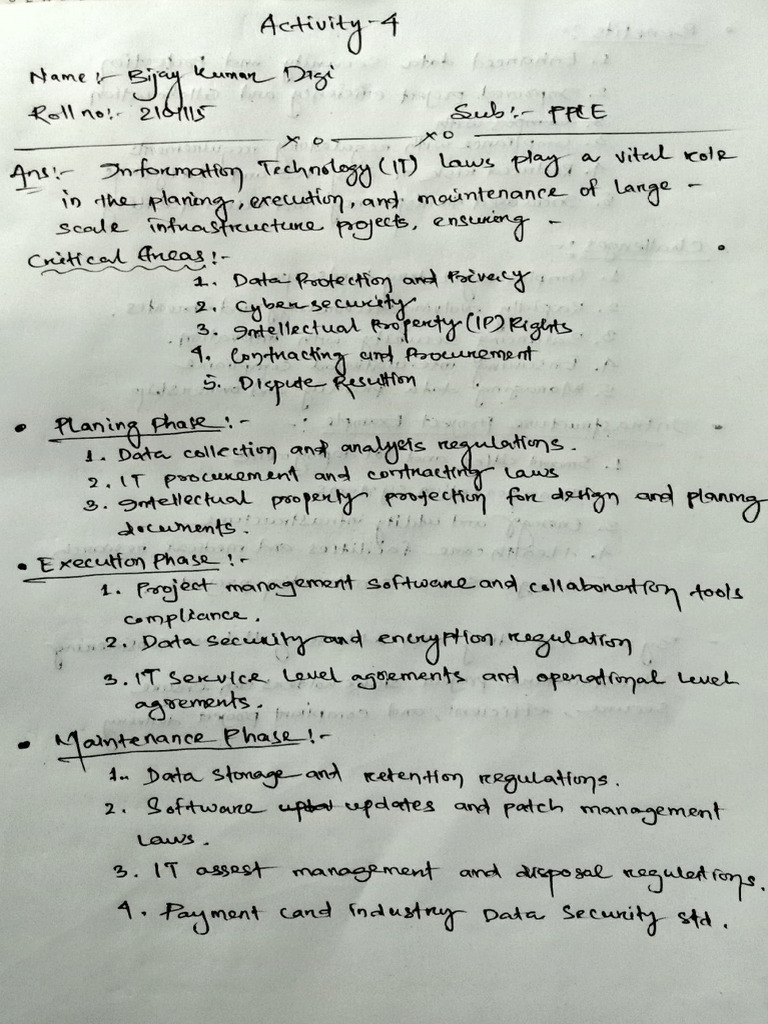 Activity-4
Name :- Bijay Kumar Digi
Roll no:- 2101115 Sub :- PPLE
x o x o
Ans:- Information Technology (IT) laws play a vital role
in the planing, execution, and maintenance of large -
scale infrastructure projects, ensuring -
Critical Areas :-
1. Data Protection and Privacy
2. Cyber security
3. Intellectual Property (IP) Rights
4. Contracting and Procurement
5. Dispute Resultion
• Planing phase :-
1. Data collection and analysis regulations.
2. IT procurement and contracting laws
3. Intellectual property protection for design and planing
documents.
• Execution Phase :-
1. Project management software and collaboration tools
compliance.
2. Data security and encryption regulation
3. IT service level agrements and operational level
agrements.
• Maintenance Phase :-
1. Data storage and retention regulations.
2. Software updates and patch management
laws.
3. IT assest management and disposal regulations.
4. Payment card industry Data Security std.